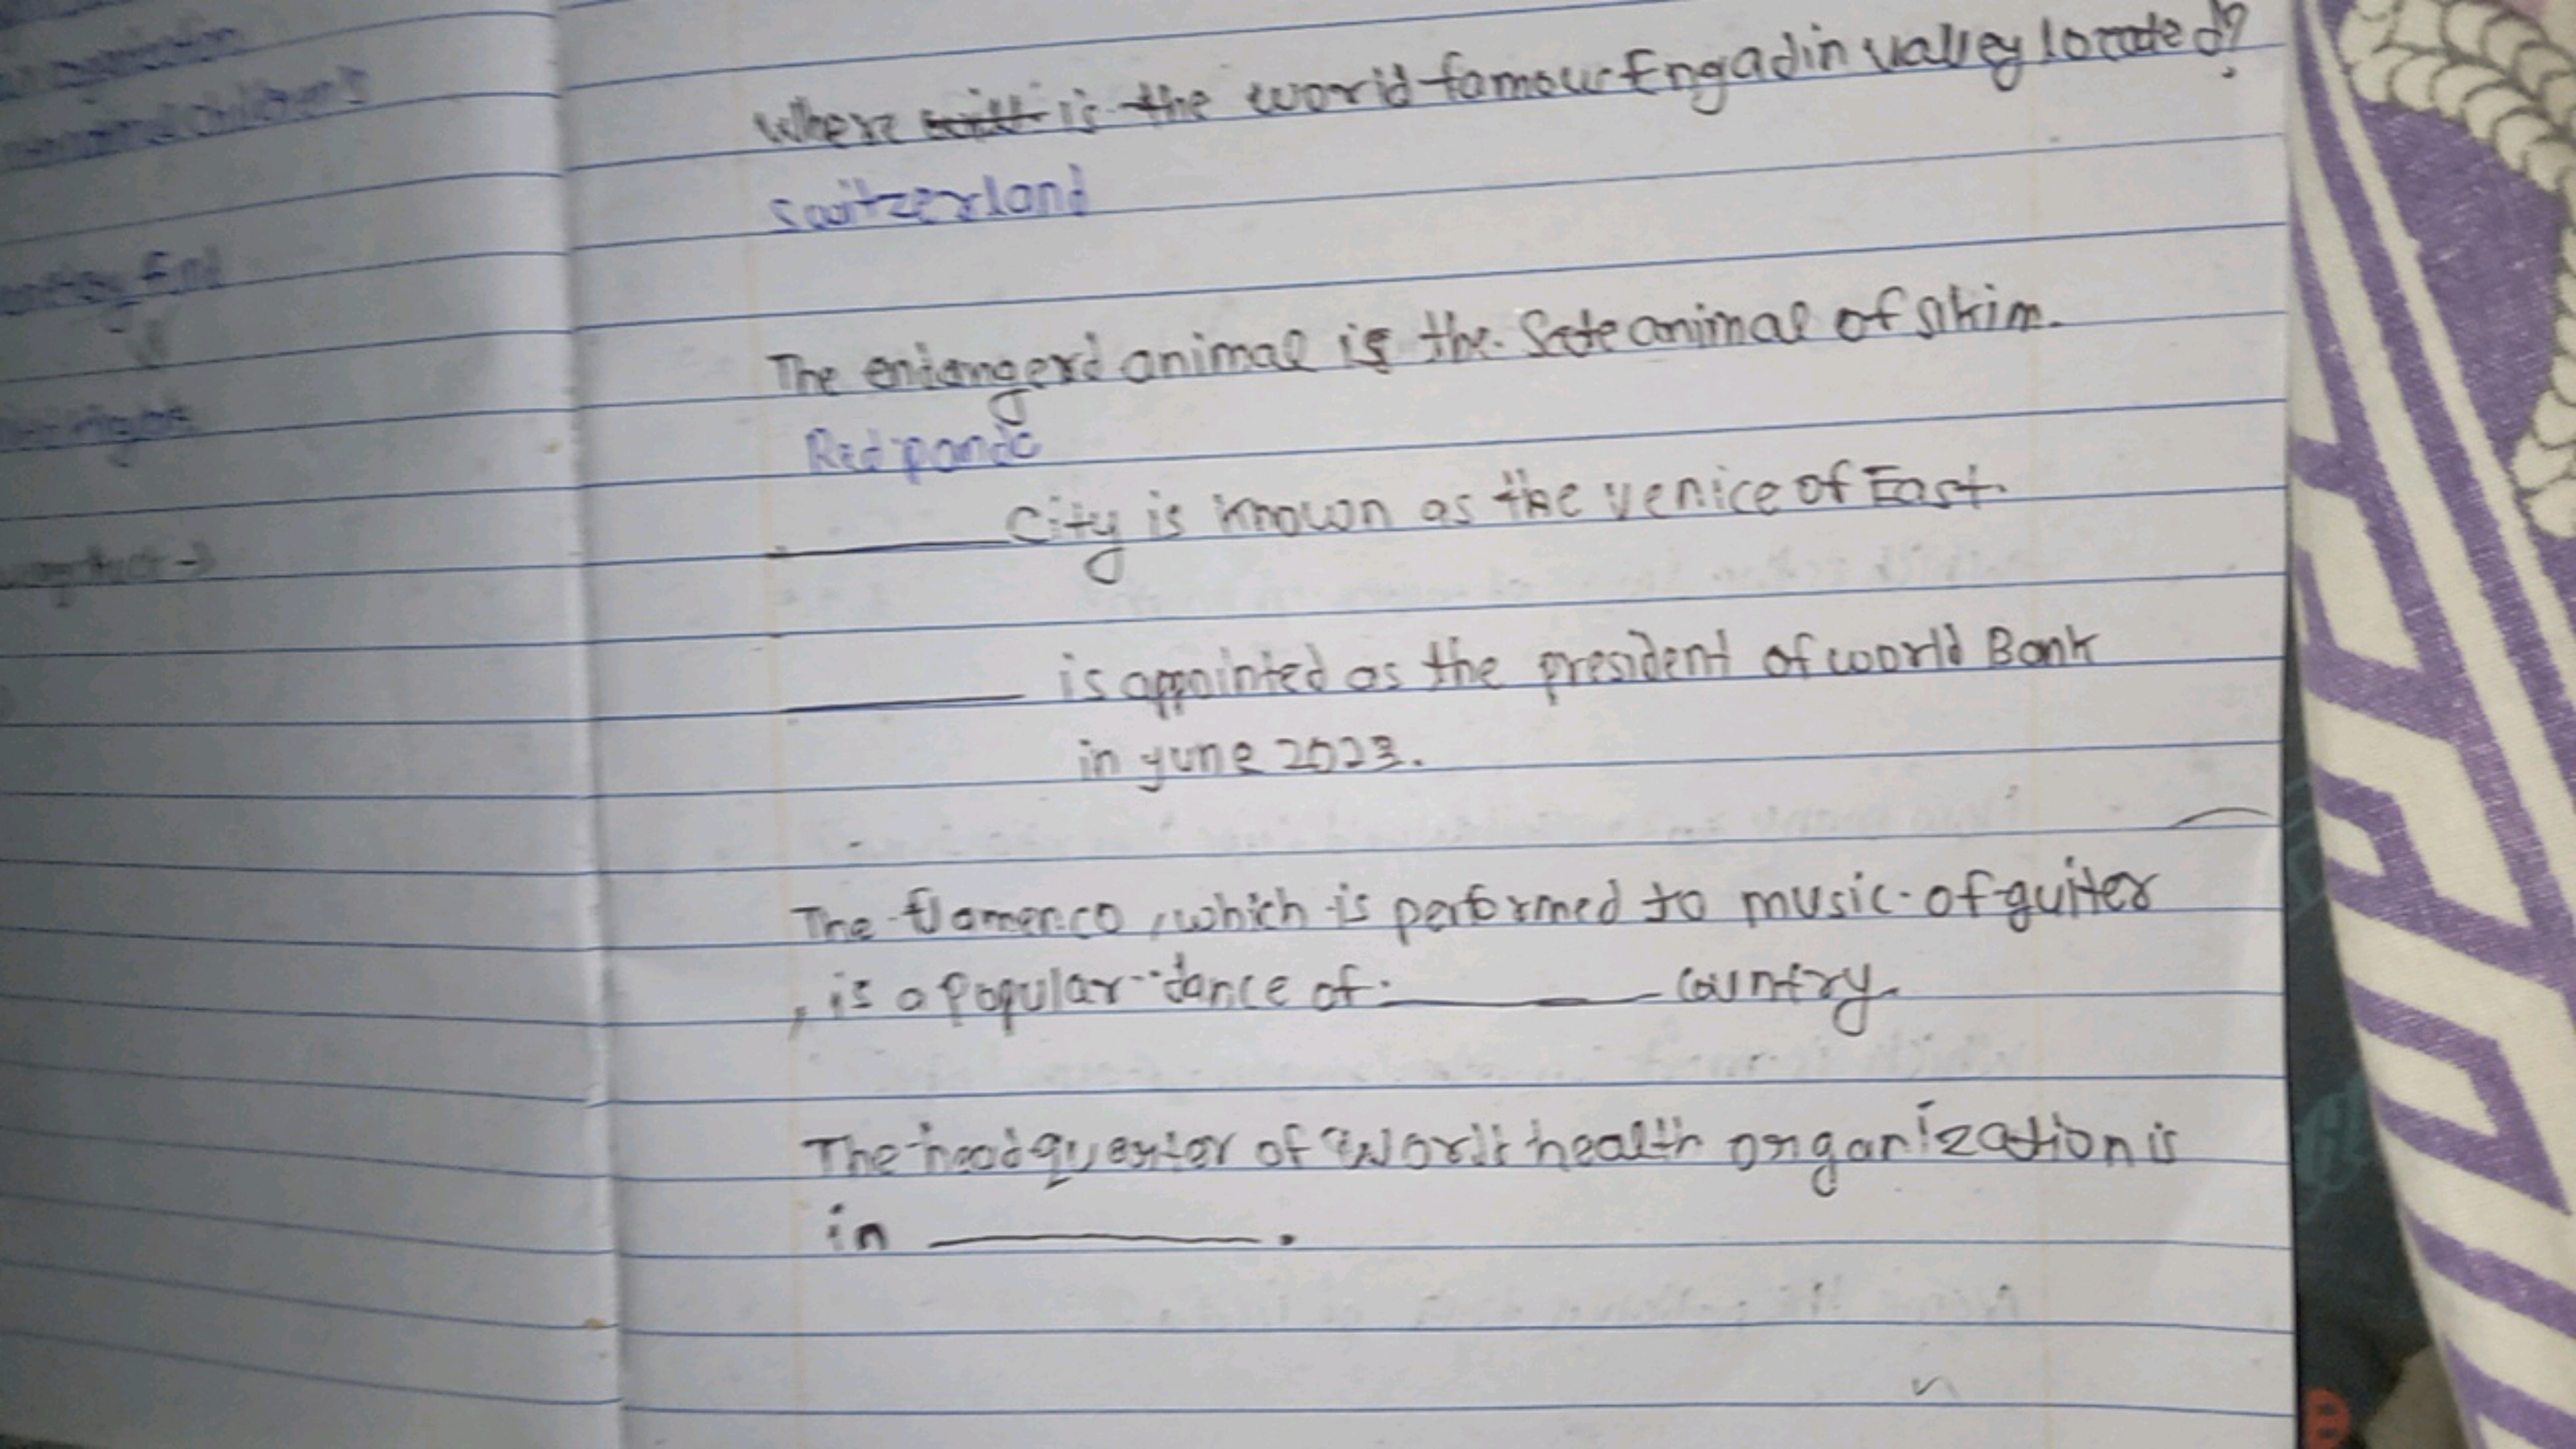 where is the world famous Engadin valley located?
Switzerland
The endangerd animal is the Sate animal of sikim.
Red panda
City is known as the venice of East.
is appointed as the president of world Bank
in yune 2023.
The flamenco, which is performed to music of guiter
, is a popular dance of country.
The headquerter of World health organization is
in .